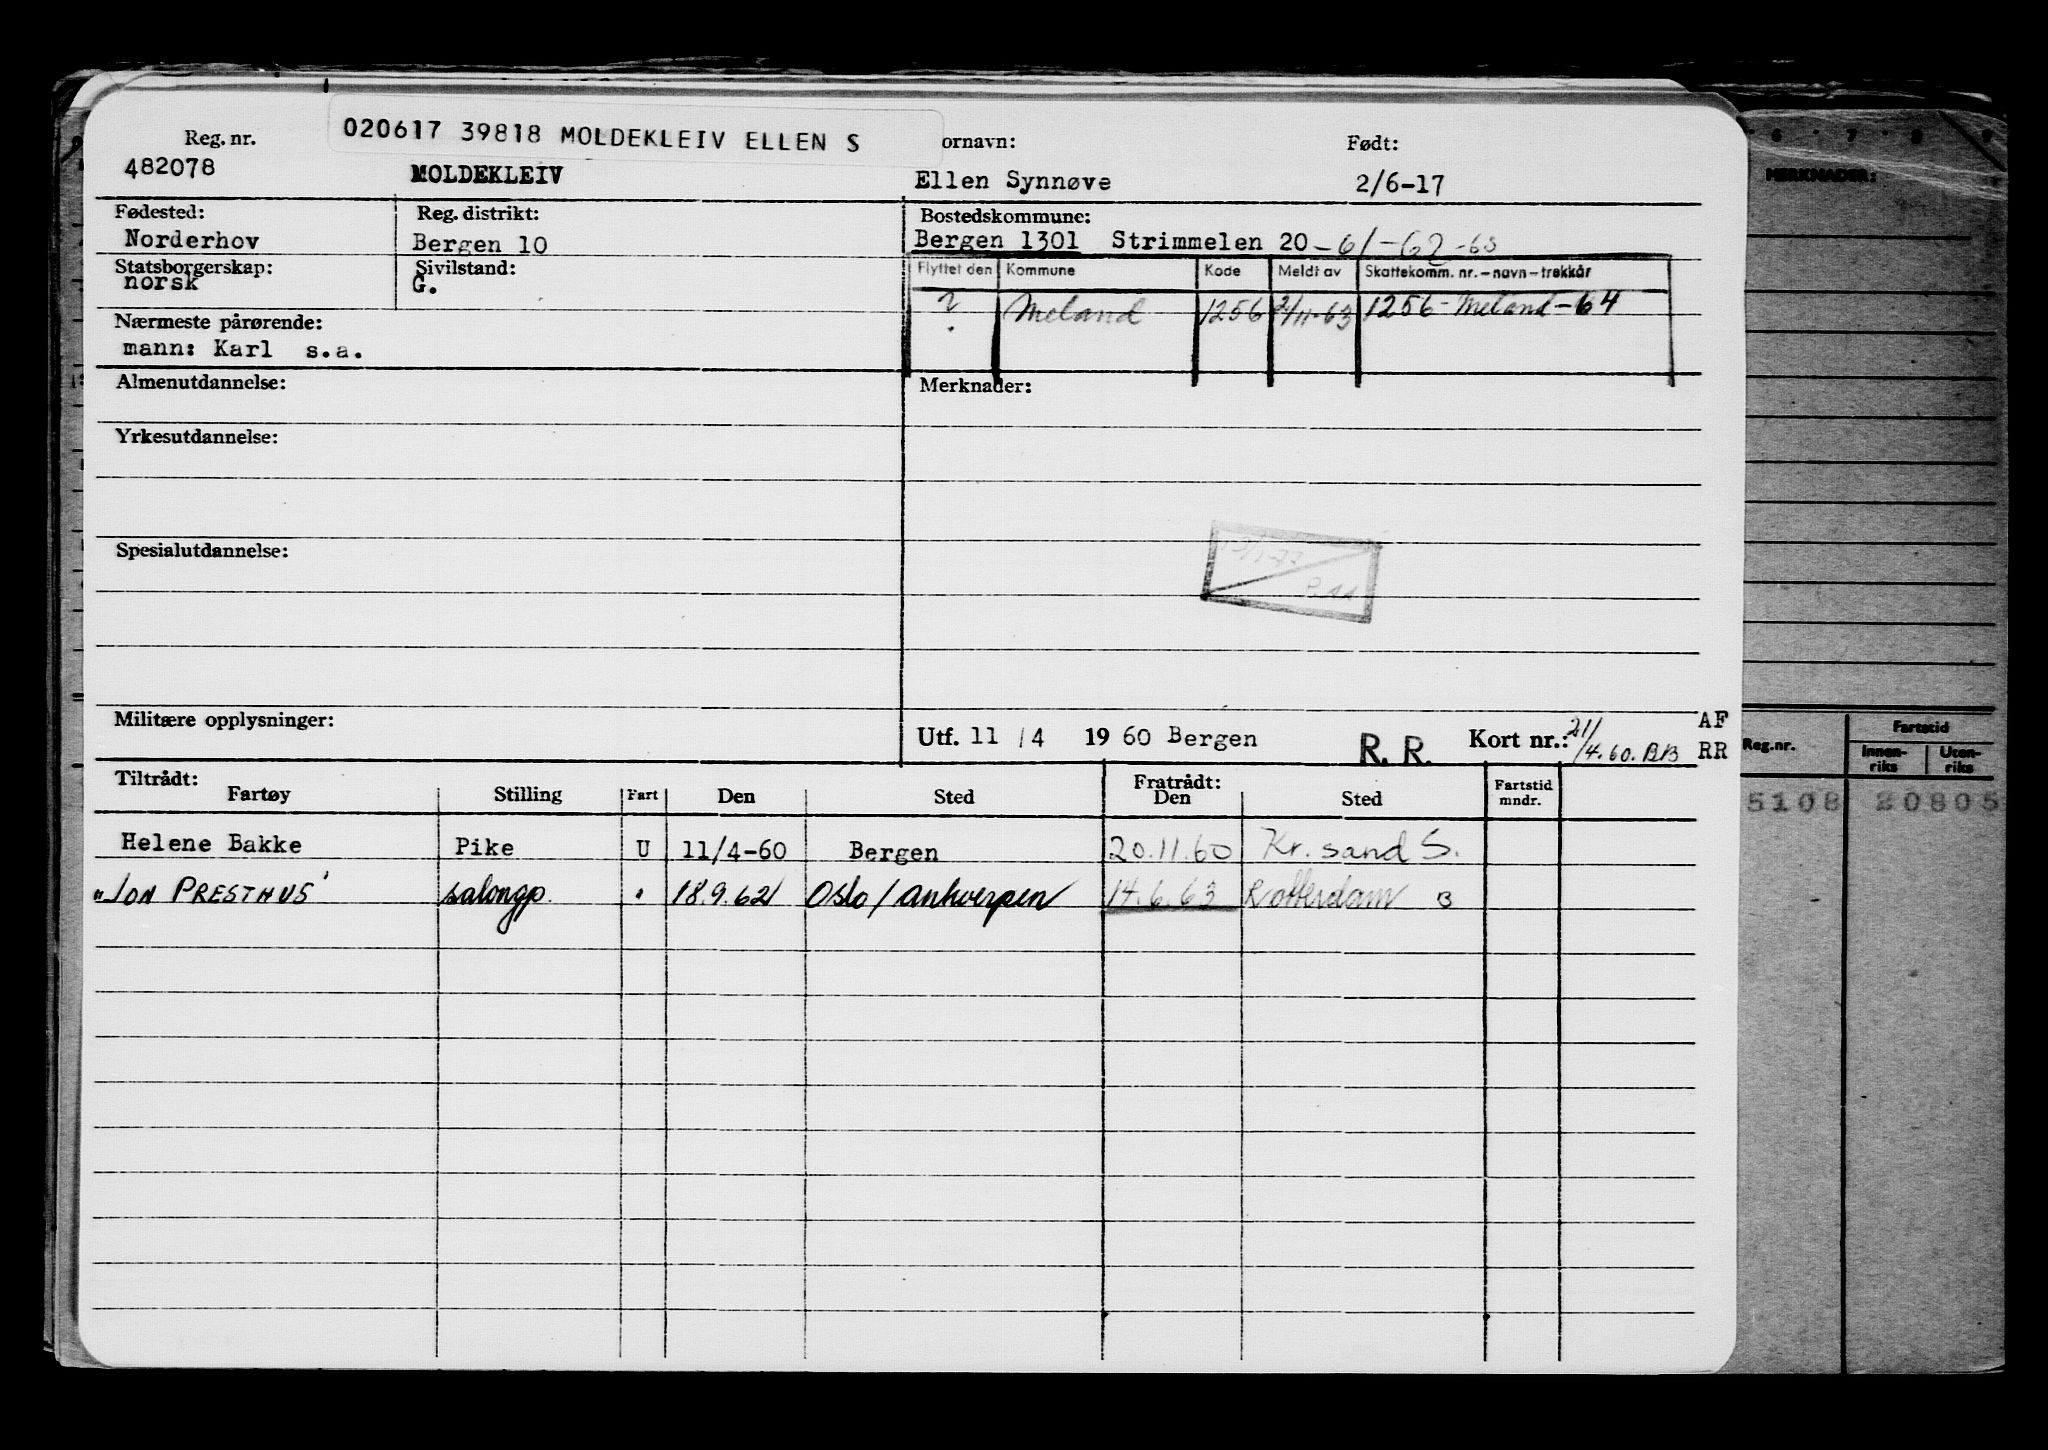 020617 39818 MOLDEKLEIV ELLEN S
Reg. nr. ornavn: Født:
482078 MOLDEKLEIV Ellen Synnøve 2/6-17
Fødested: Reg. distrikt: Bostedskommune:
Norderhov Bergen 10 Bergen 1301 Strimmelen 20 -61-62-63
Statsborgerskap: Sivilstand: Flyttet den Kommune Kode Meldt av Skattekomm. nr.-navn-trekkår
norsk G.
? Meland 1256 2/11-63 1256-Meland-64
Nærmeste pårørende:
mann: Karl s.a.
Almenutdannelse: Merknader:
Yrkesutdannelse:
Spesialutdannelse:
Militære opplysninger:
Utf. 11 /4 19 60 Bergen R. R. Kort nr.: 21/4.60. BB
AF
RR
Tiltrådt: Fratrådt:
Fartøy Stilling Fart Den Sted Den Sted Fartstid mndr.
Helene Bakke Pike U 11/4-60 Bergen 20.11.60 Kr. sand S.
"JON PRESTHUS' salongp. " 18.9.62 Oslo/Antwerpen 14.6.63 Rotterdam B
6 7 8 9
MERKNADER:
Reg.nr. Fartstid
Innen-riks Uten-riks
5108 20805